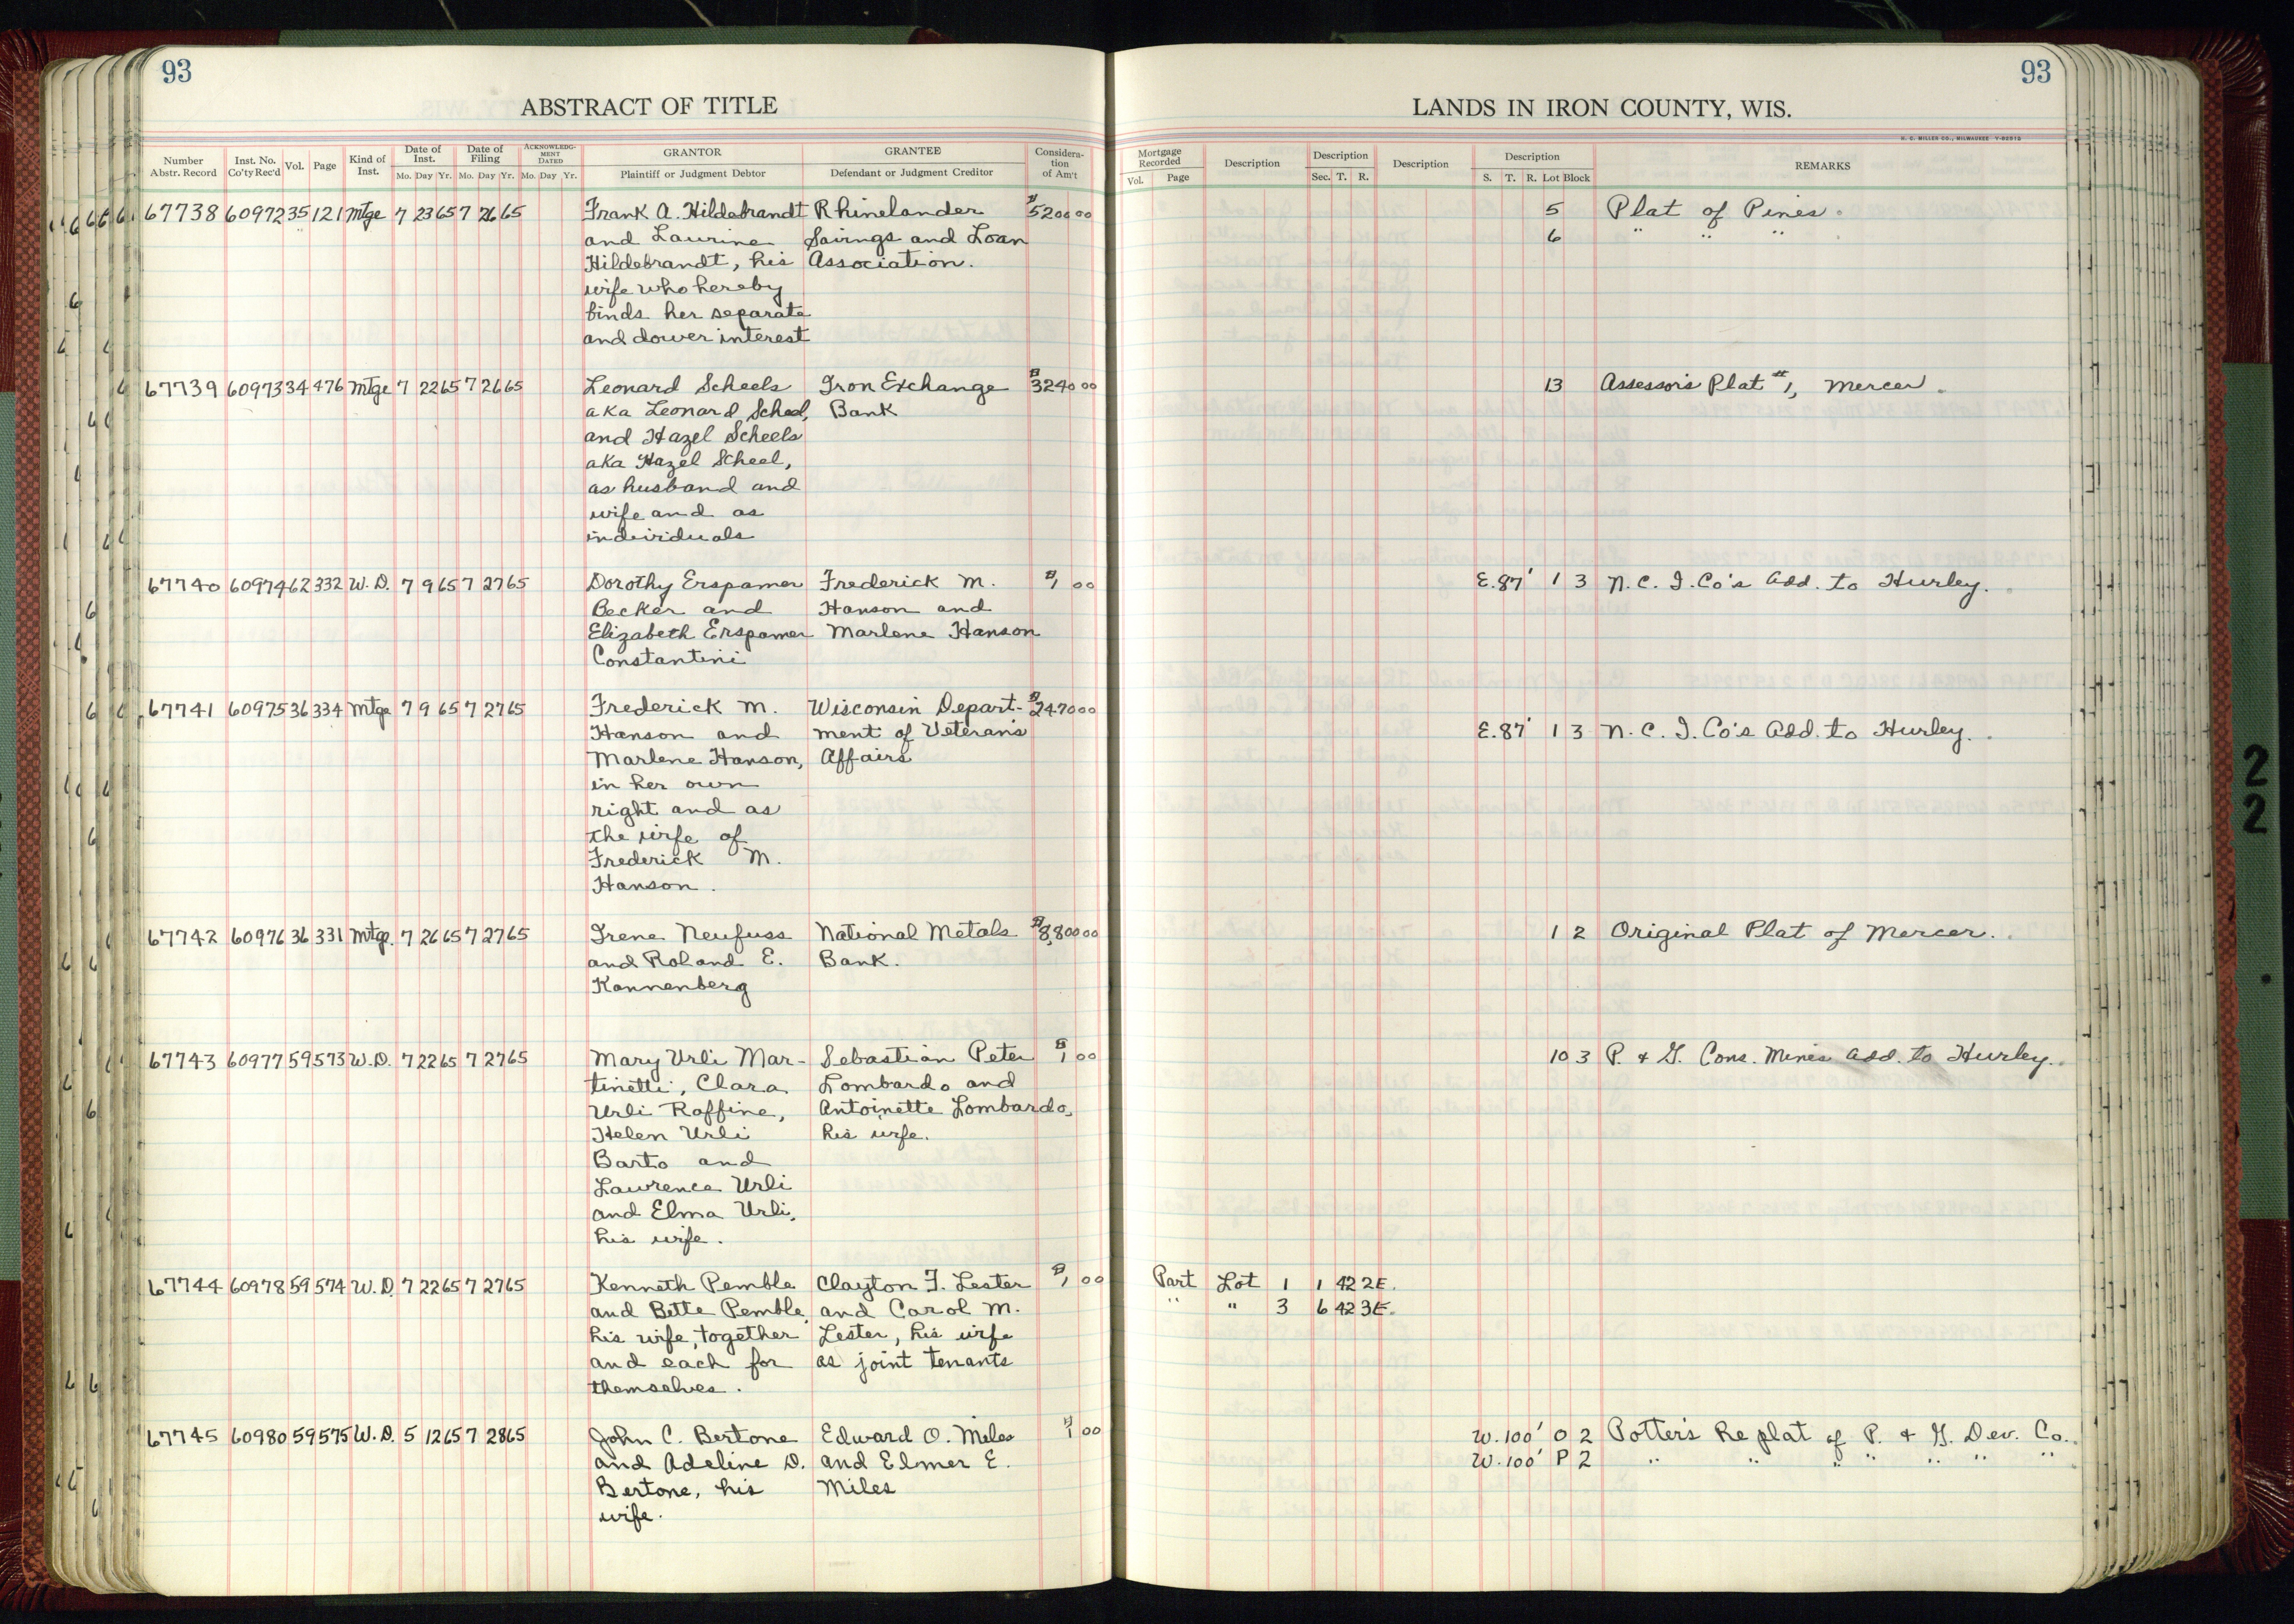 93
ABSTRACT OF TITLE
Number Abstr. Record Inst. No. Co'ty Rec'd Vol. Page Kind of Inst. Date of Inst. Mo. Day Yr. Date of Filing Mo. Day Yr. ACKNOWLEDGMENT DATED Mo. Day Yr. GRANTOR Plaintiff or Judgment Debtor GRANTEE Defendant or Judgment Creditor Consideration of Am't
67738 60972 35 121 Mtge 7 23 65 7 26 65 Frank A. Hildebrandt Rhinelander $5200 00
and Laurine Savings and Loan
Hildebrandt, his Association.
wife who hereby
binds her separate
and dower interest
67739 60973 34 476 Mtge 7 22 65 7 26 65 Leonard Scheels Iron Exchange $3240 00
aka Leonard Scheel, Bank
and Hazel Scheels
aka Hazel Scheel,
as husband and
wife and as
individuals
67740 60974 62 332 W. D. 7 9 65 7 27 65 Dorothy Erspamer Frederick M. $1 00
Becker and Hanson and
Elizabeth Erspamer Marlene Hanson
Constantini
67741 60975 36 334 Mtge 7 9 65 7 27 65 Frederick M. Wisconsin Depart- $2470 00
Hanson and ment of Veterans
Marlene Hanson, Affairs
in her own
right and as
the wife of
Frederick M.
Hanson.
67742 60976 36 331 Mtge. 7 26 65 7 27 65 Irene Neufuss National Metals $8,800 00
and Roland E. Bank.
Kannenberg
67743 60977 59 573 W. D. 7 22 65 7 27 65 Mary Urli Mar- Sebastian Peter $1 00
tinetti, Clara Lombardo and
Urli Raffine, Antoinette Lombardo,
Helen Urli his wife.
Barto and
Lawrence Urli
and Elma Urli,
his wife.
67744 60978 59 574 W. D. 7 22 65 7 27 65 Kenneth Pemble Clayton F. Lester $1 00
and Bette Pemble, and Carol M.
his wife, together Lester, his wife
and each for as joint tenants
themselves.
67745 60980 59 575 W. D. 5 12 65 7 28 65 John C. Bertone Edward O. Miles $1 00
and Adeline D. and Elmer E.
Bertone, his Miles
wife.
93
LANDS IN IRON COUNTY, WIS.
H. C. MILLER CO., MILWAUKEE
Mortgage Recorded Vol. Page Description Description Sec. T. R. Description Description S. T. R. Lot Block REMARKS
5 Plat of Pines.
6 " " "
13 Assessor's Plat #1, Mercer.
E. 87' 1 3 N. C. I. Co's Add. to Hurley.
E. 87' 1 3 N. C. I. Co's Add. to Hurley.
1 2 Original Plat of Mercer.
10 3 P. & G. Cons. Mines Add. to Hurley.
Part Lot 1 1 42 2E.
" " 3 6 42 3E.
W. 100' O 2 Potter's Replat of P. & G. Dev. Co.
W. 100' P 2 " " " " " " "
2
2